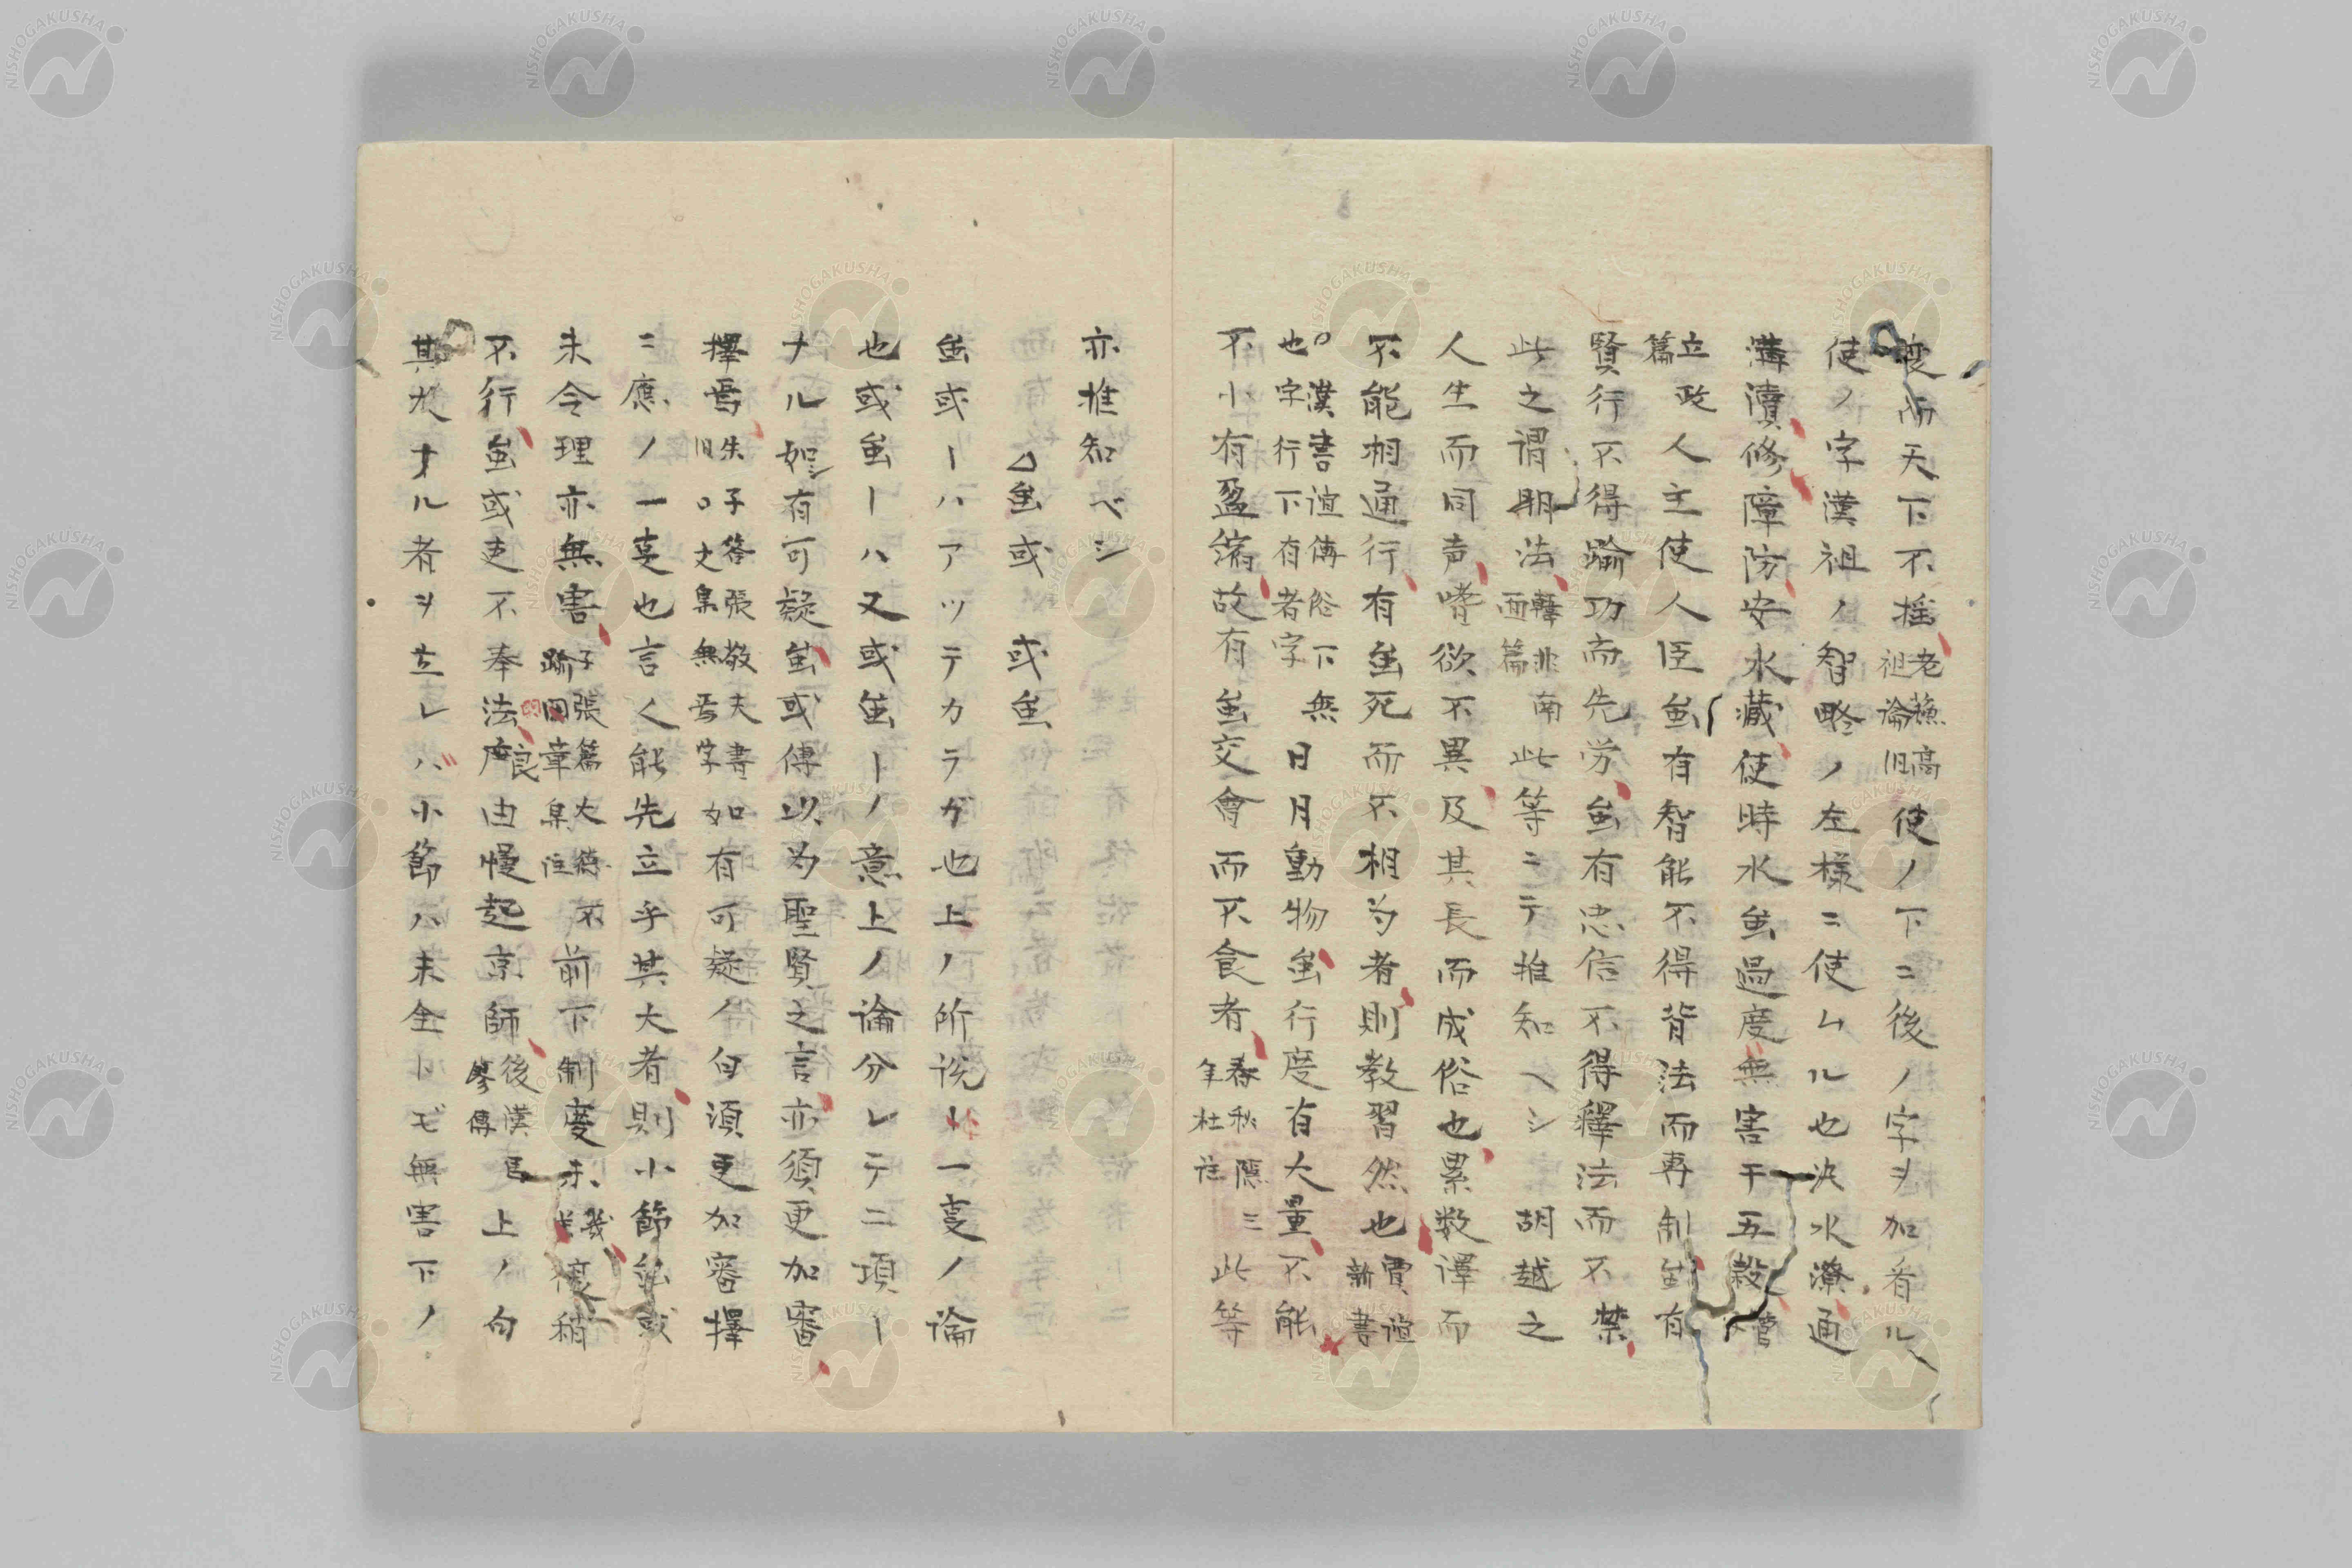 变而天下不揺老蘓高祖論旧使ノ下ニ後ノ字ヲ加看ル
使ノ字漢祖ノ智略ノ左様ニ使ムル也决水潦通
溝瀆修障防安水藏使時水虽過度無害于五穀管
立政篇人主使人臣虽有智能不得背法而専制虽有
賢行不得踰功而先労虽有忠信不得釋法而不禁
此之谓明法韓非南面篇此等ニテ推知ヘシ胡越之
人生而同声嗜欲不異及其長而成俗也累数譯而
不能相通行有虽死而不相为者則教習然也賈誼新書
○漢書誼傳俗下無也字行下有者字日月動物虽行度有大量不能
不小有盈縮故有虽交會而不食者春秋隠三年杜註此等
亦推知ベシ
△虽或 或虽
虽或ーハアツテカラガ也上ノ所说一叓ノ論
也或虽ーハ又或虽ーノ意上ノ論分レテ二項ー
ナル如シ有可疑虽或傳以为聖賢之言亦須更加審
擇焉朱子答張敬夫書旧○文集無焉字如有可疑ー句須更加審擇
ニ應ノ一叓也言人能先立乎其大者則小節虽或
未合理亦無害子張篇大德不踰閑章集註不前下制度未幾復稍
不行虽或吏不奉法良度由慢起京師後漢馬廖傳上ノ句
其大ナル者ヲ立レバ小節ハ未全トモ無害下ノ